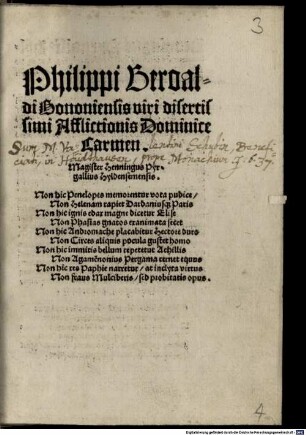 3
Philippi Beroal-
di Bononiensis viri disertis
simi Afflictionis Dominice
Carmen.
Magister Henningus Pyr
gallius Hyldensemensis.
Non hic Penelopes memorentur vota pudice/
Non Helenam rapiet Dardaniusq; Paris
Non hic ignis edax magne dicetur Elise
Non Phasias gnatos exanimata secet
Non hic Andromache placabitur Hectore duro
Non Circes aliquis pocula gustet homo
Non hic immitis bellum repetetur Achillis
Non Agamēnonius Pergama cernet equus
Non hic res Paphie narretur/ at inclyta virtus
Non fraus Mulciberis/ sed probitatis opus.
4